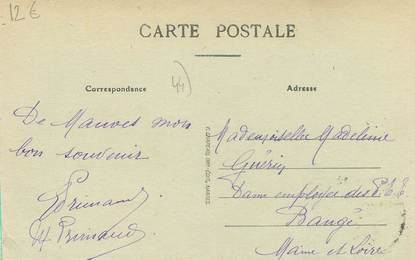 12 €
CARTE POSTALE
Correspondance
44
Adresse
De Mauves mon
bon souvenir
H Primaud
Mademoiselle Madeleine
Guérin
Dame employée des P.T.T
Baugé
Maine et Loire